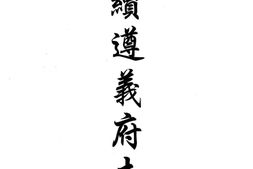 續遵義府